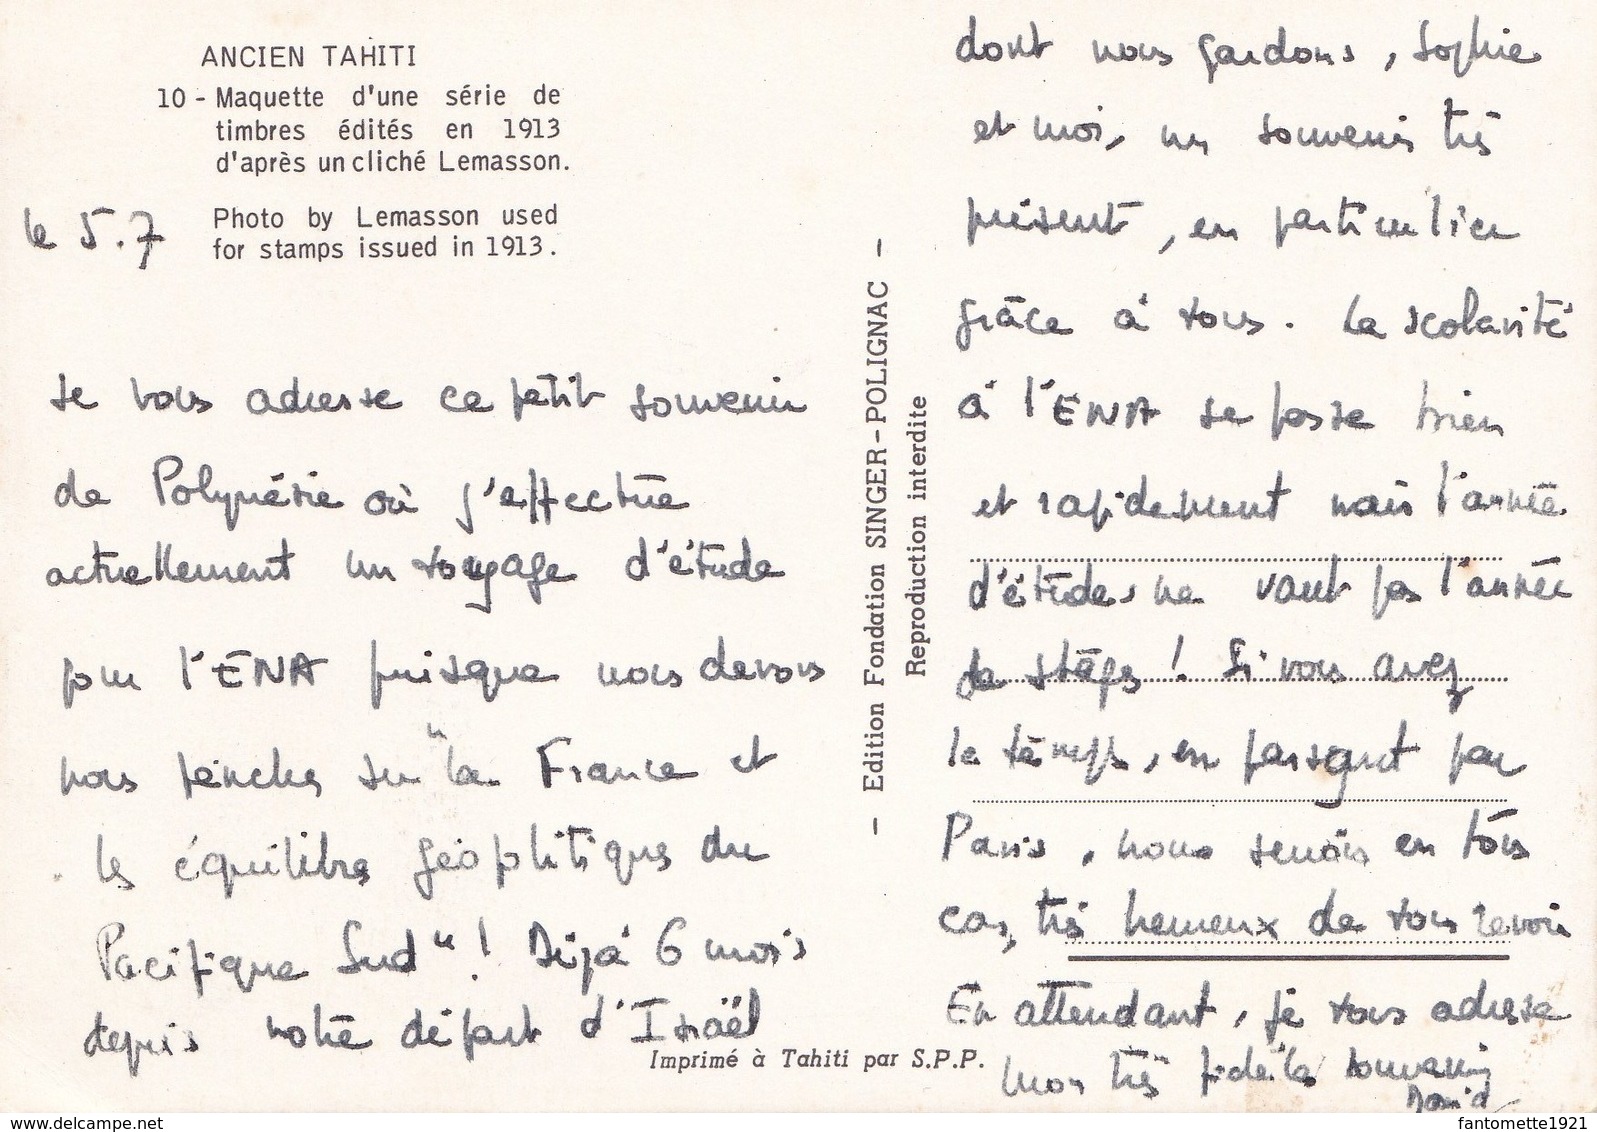 ANCIEN TAHITI
10 - Maquette d'une série de
timbres édités en 1913
d'après un cliché Lemasson.
Photo by Lemasson used
for stamps issued in 1913.
le 5.7
Je vous adresse ce petit souvenir
de Polynésie où j'effectue
actuellement un voyage d'étude
pour l'ENA puisque nous devons
nous pencher sur "la France et
les équilibres géopolitiques du
Pacifique Sud"! Déjà 6 mois
depuis notre départ d'Israël
- Edition Fondation SINGER-POLIGNAC -
Reproduction interdite
Imprimé à Tahiti par S.P.P.
dont nous gardons, Sophie
et moi, un souvenir très
présent, en particulier
grâce à vous. La scolarité
à l'ENA se passe bien
et rapidement mais l'année
d'études ne vaut pas l'année
de stages! Si vous avez
le temps, en passant par
Paris, nous serions en tous
cas, très heureux de vous revoir
En attendant, je vous adresse
mon très fidèle souvenir
David
www.delcampe.net
fantomette1921